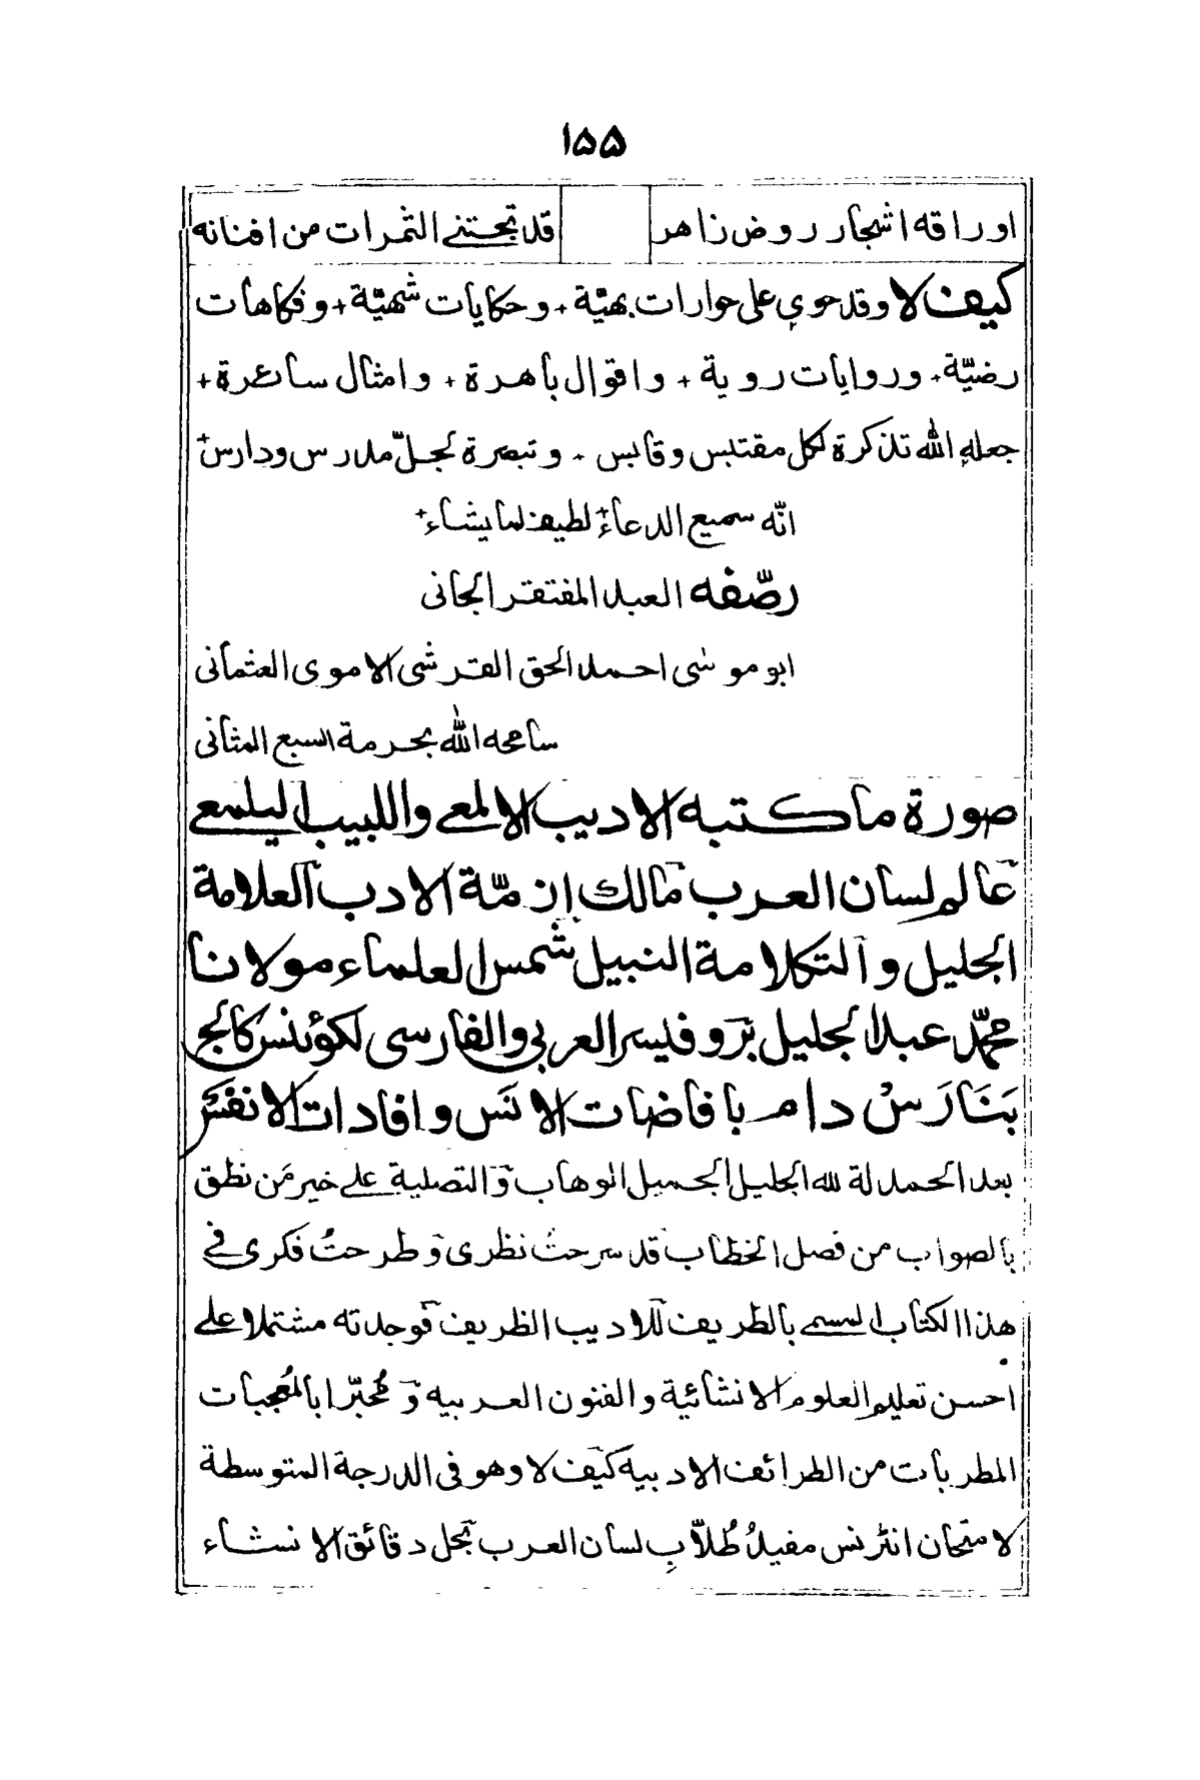 ۱۵۵
اوراقه اشجار روض زاهر قد تجتنے الثمرات من افنانه
كيف لا وقد حوي على حوارات بهيّة + وحكايات شهيّة + وفكاهات
رضيّة + وروايات روية + واقوال باهرة + وامثال سائرة +
جعله الله تذكرة لكل مقتبس وقابس + وتبصرة لجلّ مدرس ودارس +
انّه سميع الدعاء + لطيف لما يشاء +
رصّفه العبد المفتقر الجانى
ابو موسٰى احمد الحق القرشى الاموى العثمانى
سامحه الله بحرمة السبع المثانى
صورة ما كتبه الاديب الالمعے واللبيب اليلمعے
عالم لسان العرب مالك ازمّة الادب العلامة
الجليل والتكلامة النبيل شمس العلماء مولانا
محمّد عبد الجليل پروفيسر العربي والفارسى لكوئنس كالج
بَنَارَسْ دام بافاضات الانَس وافادات الانفَس
بعد الحمدلة لله الجليل الجميل الوهاب وَالتصلية علے خير مَن نطق
بالصواب من فصل الخطاب قد سرحتُ نظرى وَطرحتُ فكرى فے
هذا الكتاب المسمے بالطريف للاديب الظريف فوجدته مشتملا علے
احسن تعليم العلوم الانشائية والفنون العربيه وَمُحبّرا بالمُعجبات
المطربات من الطرائف الادبيه كَيفَ لا وهو فى الدرجة المتوسطة
لامتحان انٹرنس مفيدُ طُلاّبِ لسان العرب بَحل دقائق الانشاء